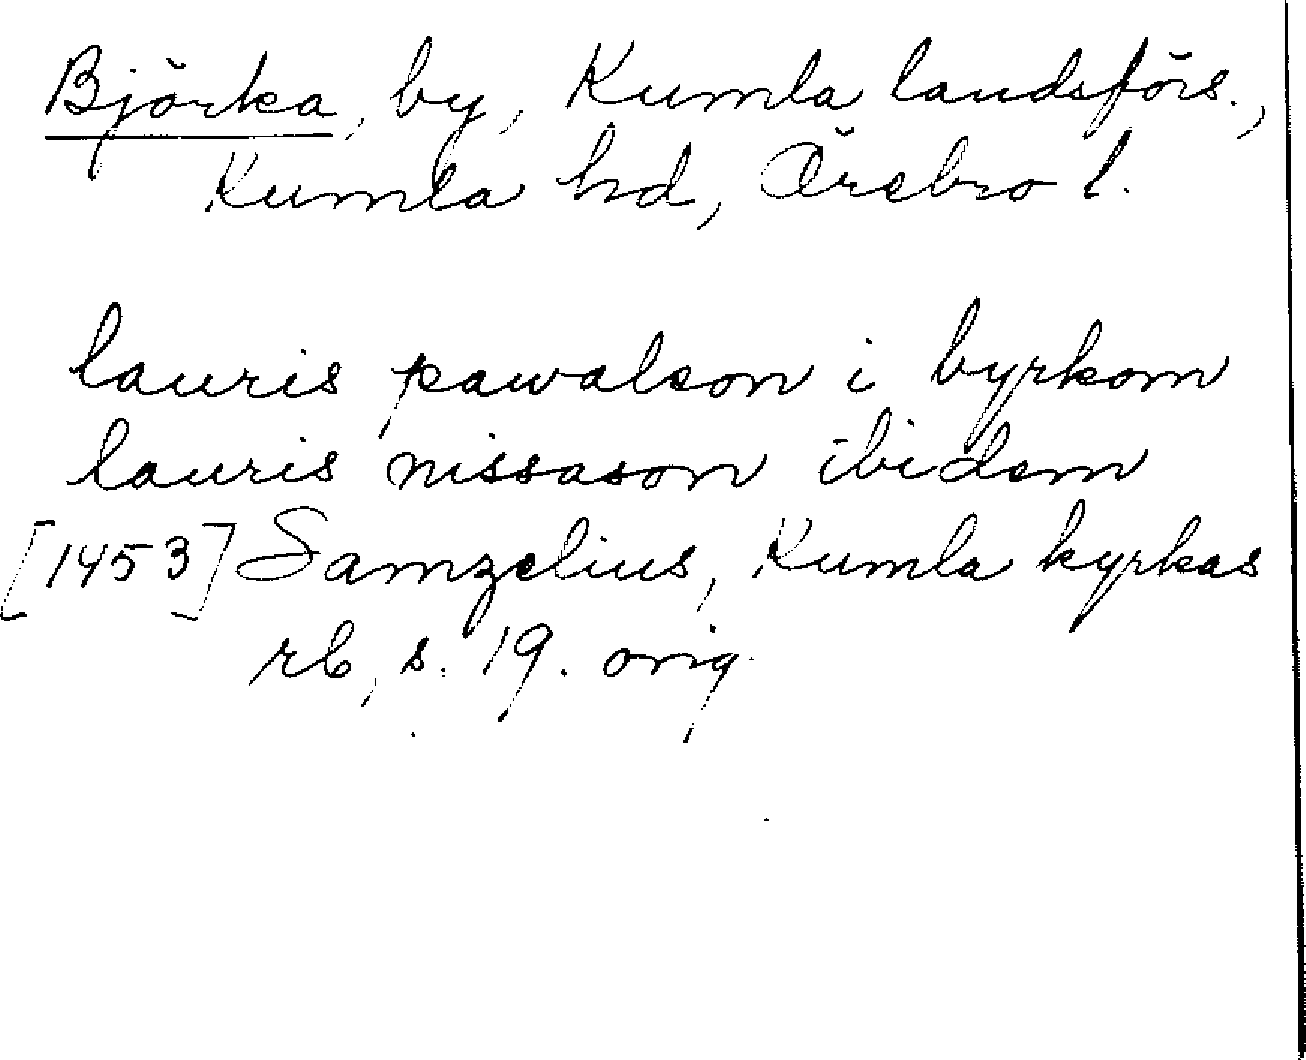 Björka, by, Kumla landsförs.,
Kumla hd, Örebro l.
lauris pawalson i byrkom
lauris nissason ibidem
[1453] Samzelius, Kumla kyrkas
rb, s. 19. orig.